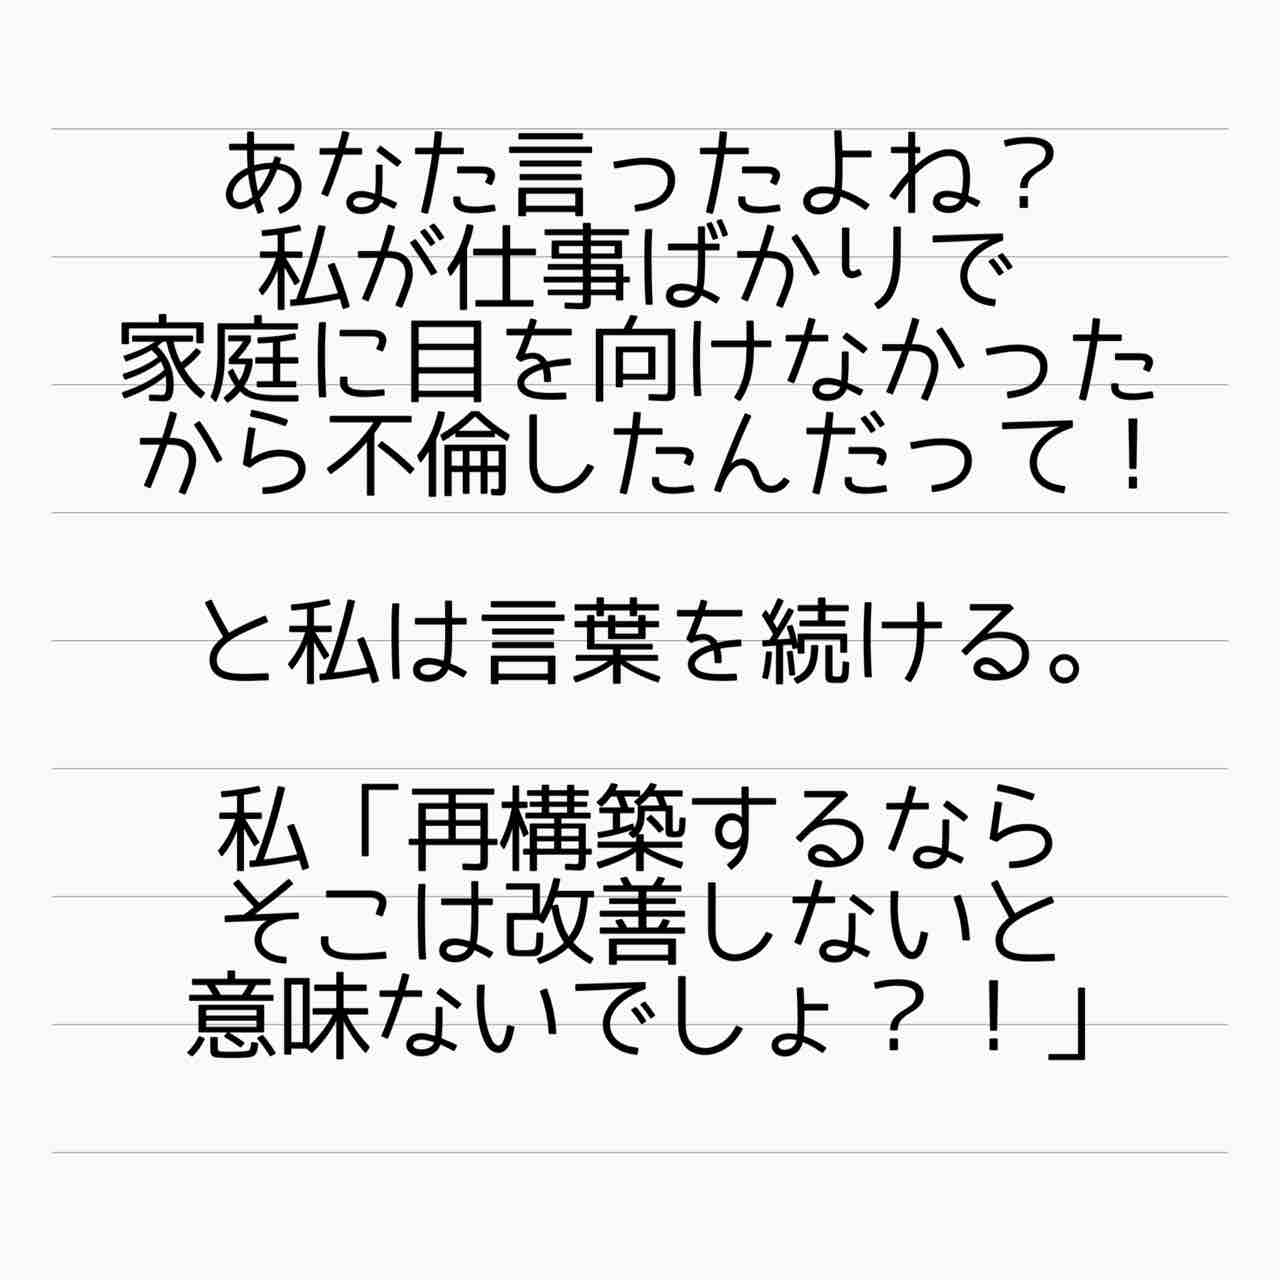 あなた言ったよね？
私が仕事ばかりで
家庭に目を向けなかった
から不倫したんだって！
と私は言葉を続ける。
私「再構築するなら
そこは改善しないと
意味ないでしょ？！」